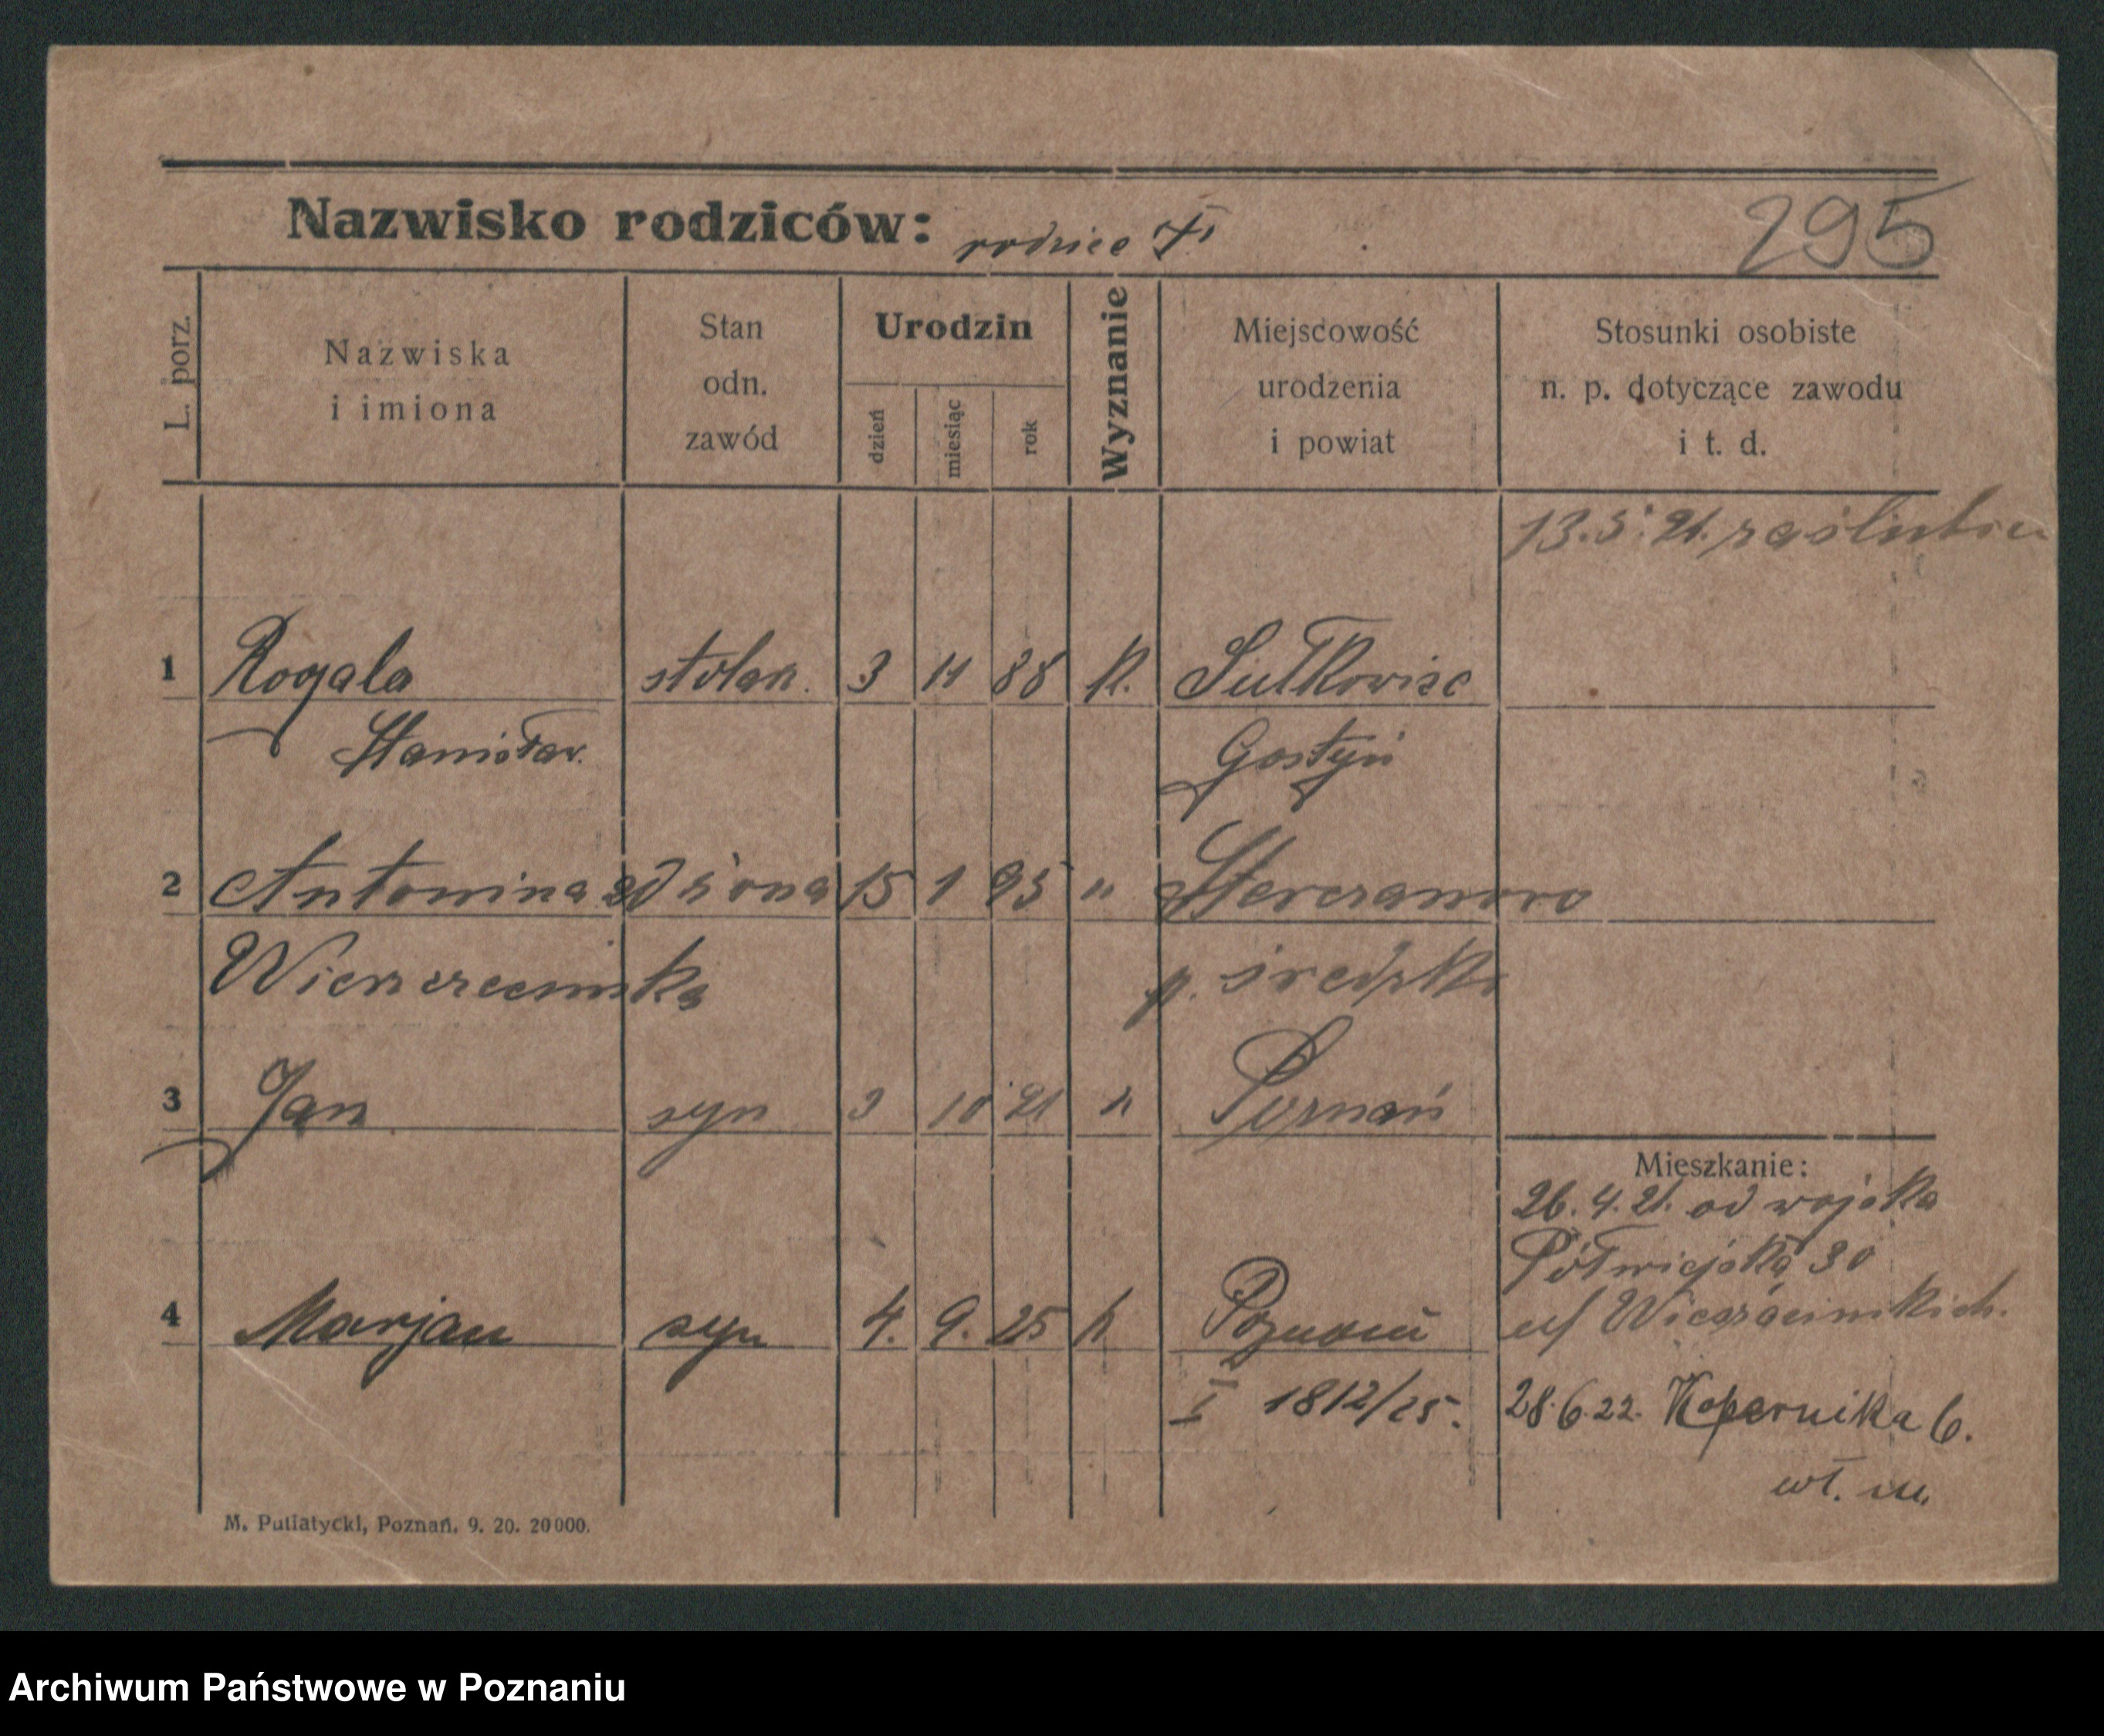 Nazwisko rodziców: rodzice
295
L. porz.
Nazwiska
i imiona
Stan
odn.
zawód
Urodzin
dzień
miesiąc
rok
Wyznanie
Miejscowość
urodzenia
i powiat
Stosunki osobiste
n. p. dotyczące zawodu
i t. d.
13.5.21.
1 Rogala stolarz. 3 11 88 k.
Stanisław.
Gostyń
2 Antonina 15 1 95 "
3 Jan syn 10 21 " Poznań
Mieszkanie:
26.4.21. od wojska
Półwiejska 30
4 Marjan syn 4. 9. 25 k Poznań
I 1812/25.
28.6.22. Kopernika 6.
wł. m.
M. Putiatycki, Poznań. 9. 20. 20000.
Archiwum Państwowe w Poznaniu